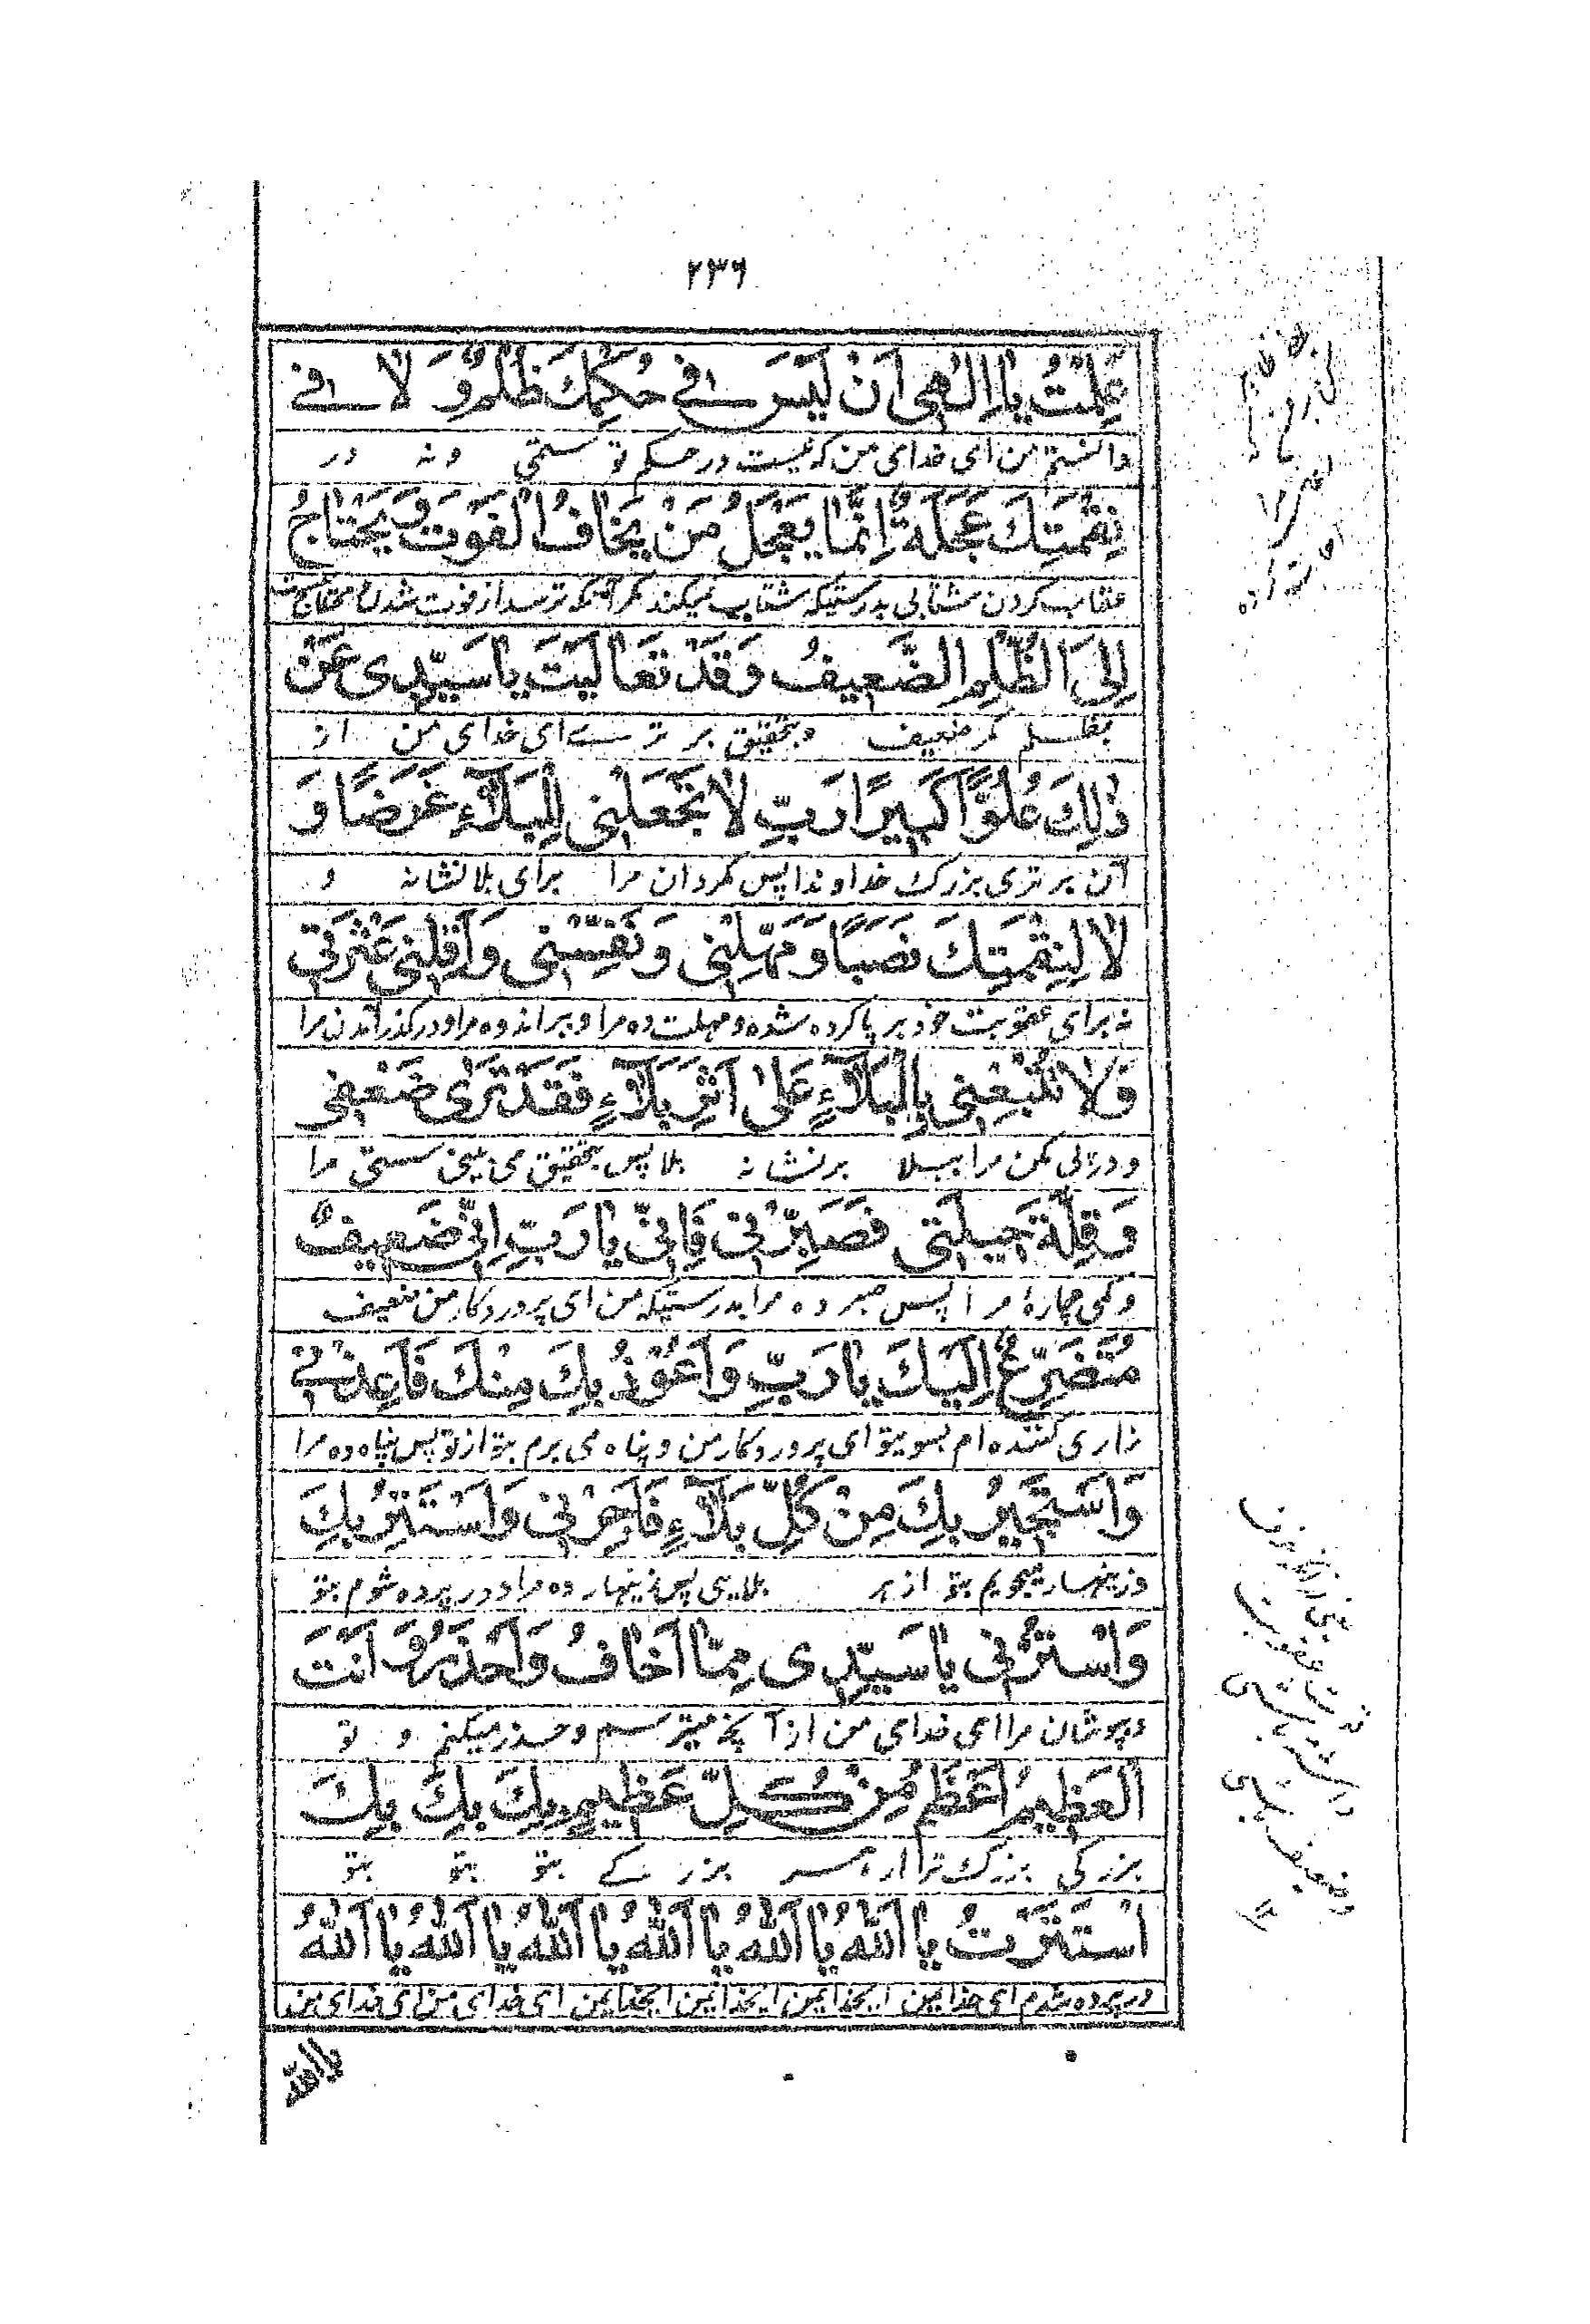 ۲۳۶
عَلِمْتُ يٰا اِلٰهِى اَنْ لَيْسَ فِے حُكْمِكَ ظُلْمٌ وَّ لَا فِے
دانستم من ای خدای من که نیست در حکم تو ستمی ونه در
نِقْمَتِكَ عَجَلَةٌ اِنَّمٰا يَعْجَلُ مَنْ يَخٰافُ الْفَوْتَ وَ يَحْتٰاجُ
عقاب کردن شتابی بدرستیکه شتاب میکند مگر آنکه ترسد از فوت شدن و محتاج
اِلَى الظُّلْمِ الضَّعِيفُ وَقَدْ تَعٰالَيْتَ يٰا سَيِّدِى عَنْ
بظلم مگر ضعیف وبتحقیق برترے ای خدای من از
ذٰلِكَ عُلُوًّا كَبِيرًا رَبِّ لٰا تَجْعَلْنِى لِلْبَلَآءِ غَرَضًا وَ
آن برتری بزرک خداوندا پس مگردان مرا برای بلا نشانه و
لٰا لِنِقْمَتِكَ نَصَبًا وَ مَهِّلْنِى وَ نَفِّسْنِى وَ اَقِلْنِى عَثْرَتِى
نه برای عقوبت خود برپا کرده شده و مهلت ده مرا و ببر اندوه مرا و درگذر از من مرا
وَلٰا تُتْبِعْنِى بِالْبَلَآءِ عَلٰى اَثَرِ بَلَآءٍ فَقَدْ تَرٰى ضَعْفِى
و در پی مکن مرا ببلا بر نشانه بلا پس بتحقیق می بینی سستی مرا
وَ قِلَّةَ حِيلَتِى فَصَبِّرْنِى فَاِنِّى يٰا رَبِّ اِنِّى ضَعِيفٌ
وکمی چارهٔ مرا پس صبر ده مرا بدرستیکه من ای پروردکار من ضعیف
مُتَضَرِّعٌ اِلَيْكَ يٰا رَبِّ وَ اَعُوْذُ بِكَ مِنْكَ فَاَعِذْنِے
زاری کننده ام بسویتو ای پروردکار من و پناه می برم بتو از تو پس پناه ده مرا
وَ اَسْتَجِيرُ بِكَ مِنْ كُلِّ بَلَآءٍ فَاَجِرْنِى وَ اَسْتَتِرُ بِكَ
و زینهار میجویم بتو از هر بلایی پس زینهار ده مرا و در پرده شوم بتو
وَاسْتُرْنِى يٰا سَيِّدِى مِمّٰا اَخٰافُ وَ اَحْذَرُ وَ اَنْتَ
و بپوشان مرا ای خدای من از آنچه میترسم و حذر میکنم و تو
الْعَظِيمُ اَعْظَمُ مِنْ كُلِّ عَظِيمٍ بِكَ بِكَ بِكَ
بزرکی بزرک تر از هر بزرکے بتو بتو بتو
اسْتَتَرْتُ يٰا اَللّٰهُ يٰا اَللّٰهُ يٰا اَللّٰهُ يٰا اَللّٰهُ يٰا اَللّٰهُ يٰا اَللّٰهُ
در پرده شدم ای خدایمن ایخدایمن ایخدایمن ایخدایمن ای خدای من ای خدای من
یا الله